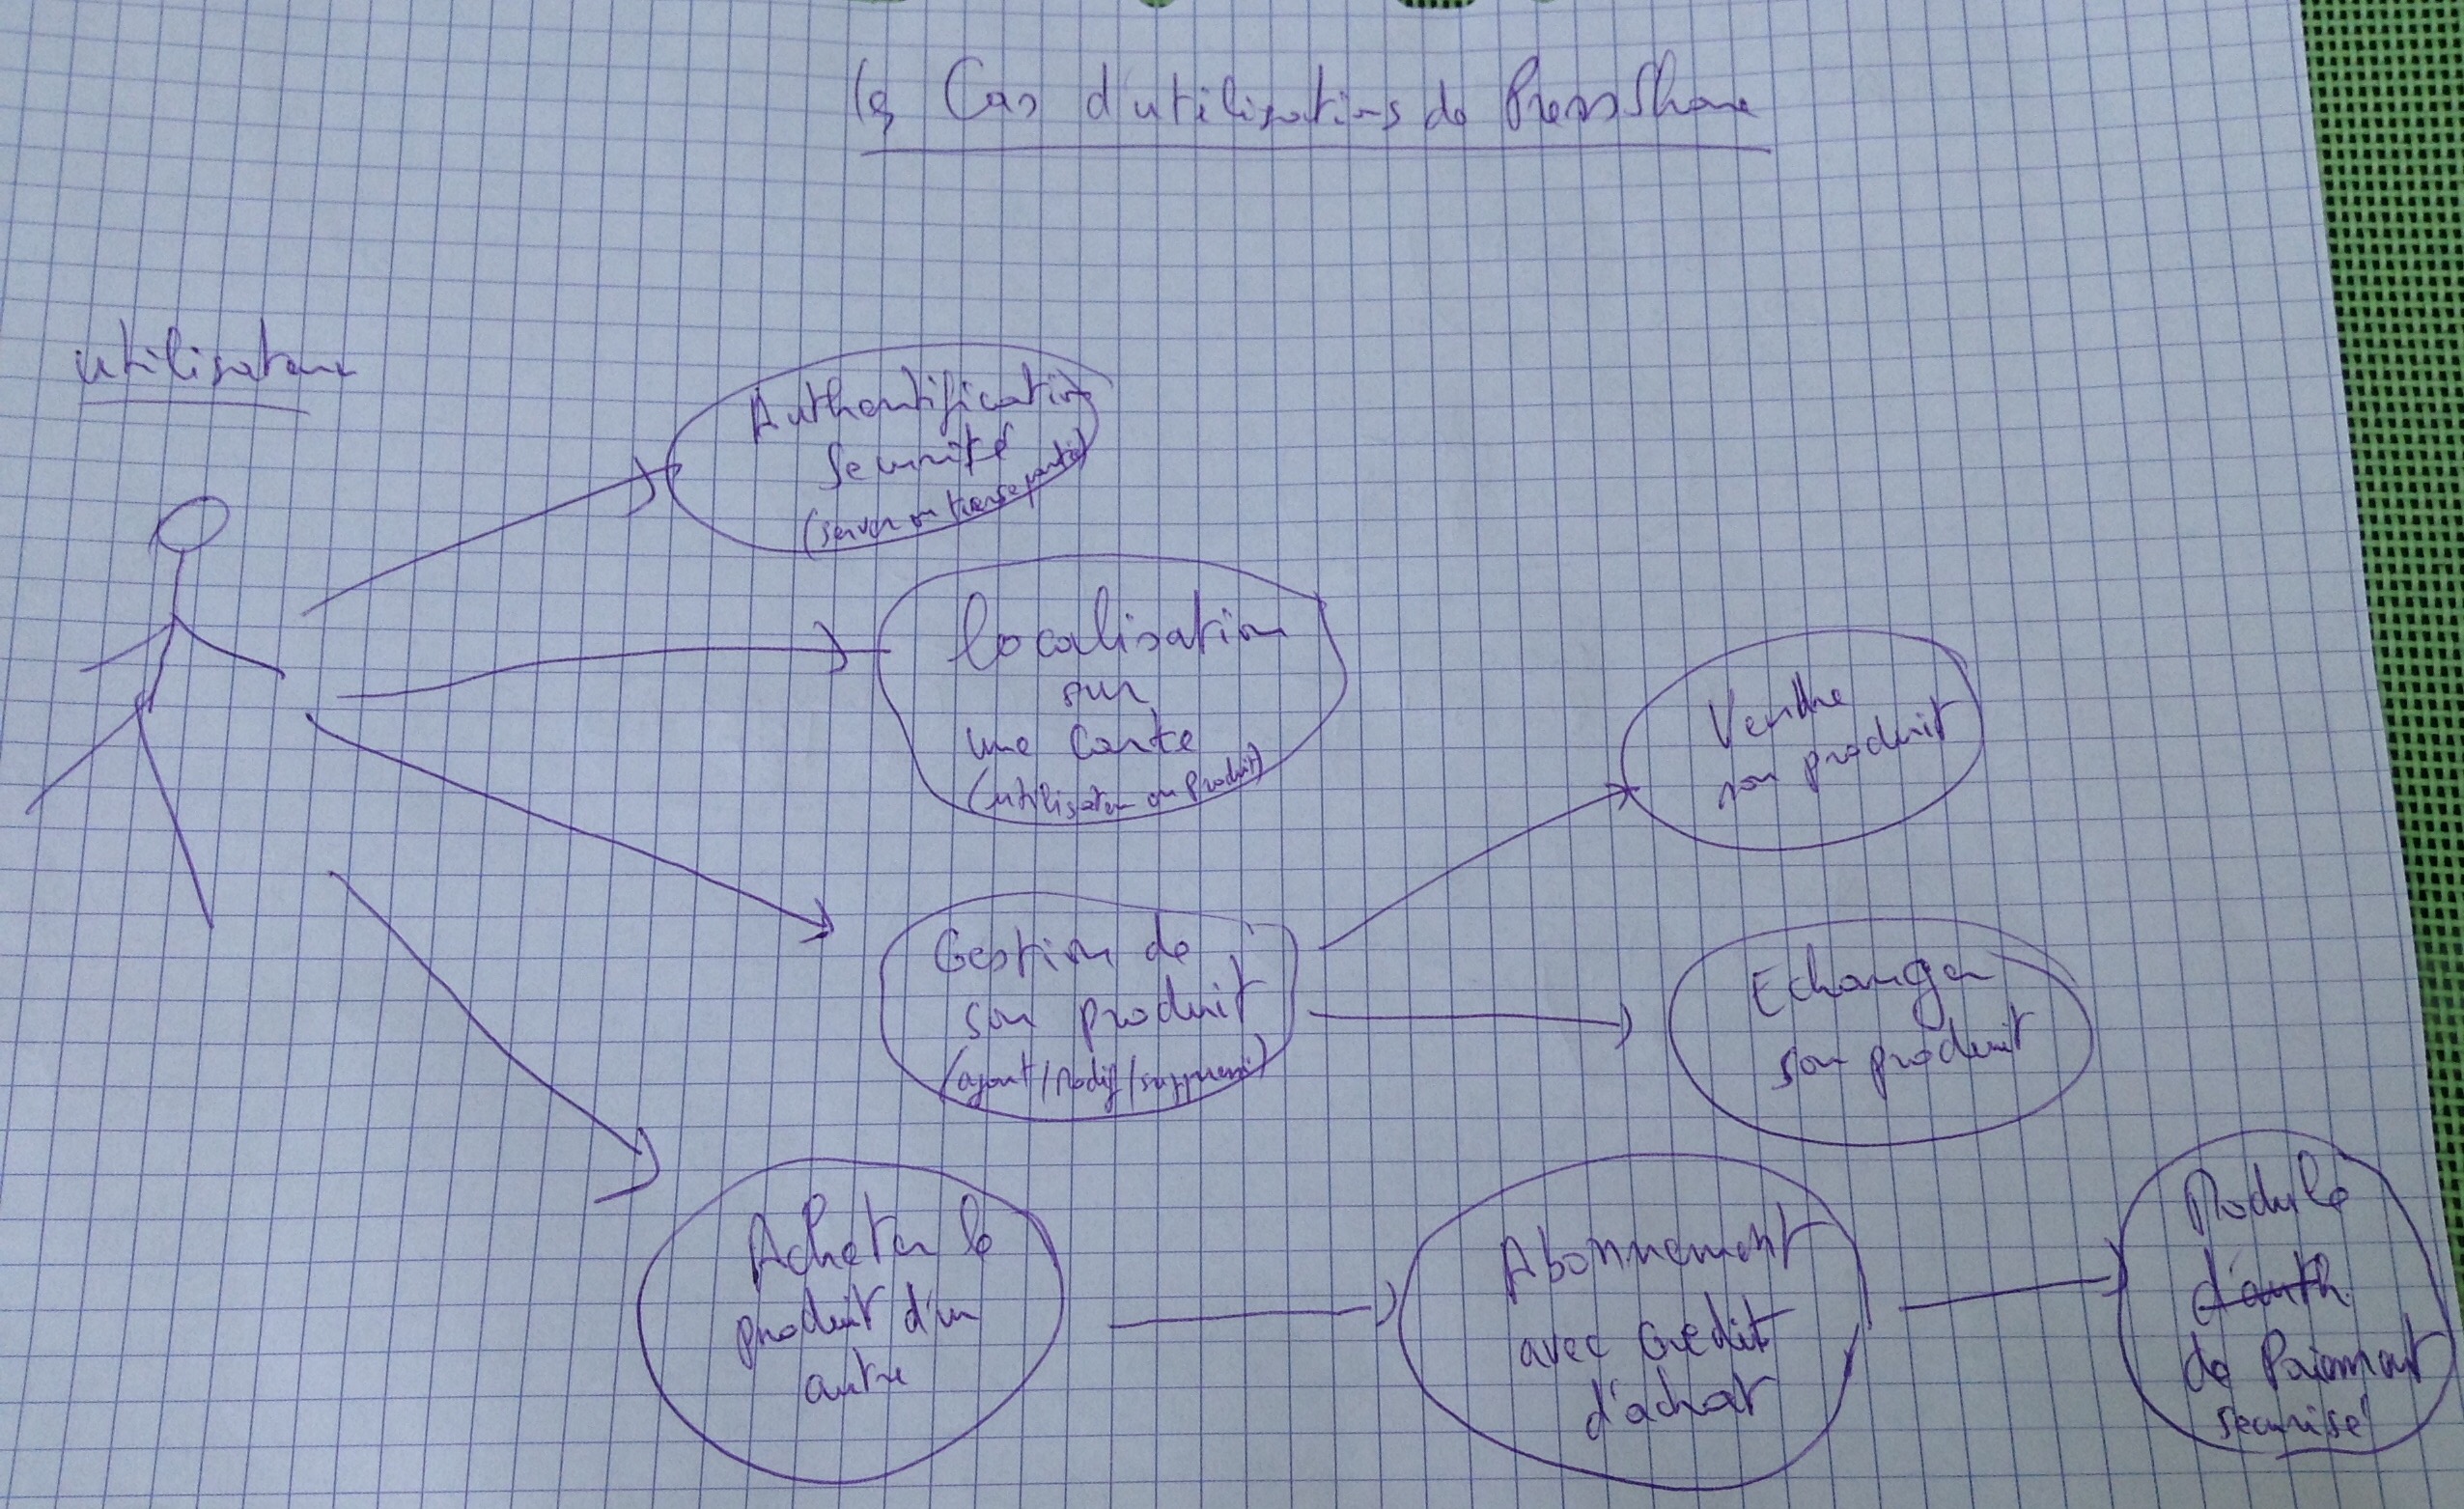 les Cas d'utilisations de PressShare
utilisateur
Authentification
Securité
(server ou tierce partie)
localisation
sur
une Carte
(utilisateur ou Produit)
Vendre
son produit
Gestion de
son produit
(ajout/Modif/suppression)
Echanger
son produit
Acheter le
produit d'un
autre
Abonnement
avec Credit
d'achat
Module
d'auth
de Paiement
securisé